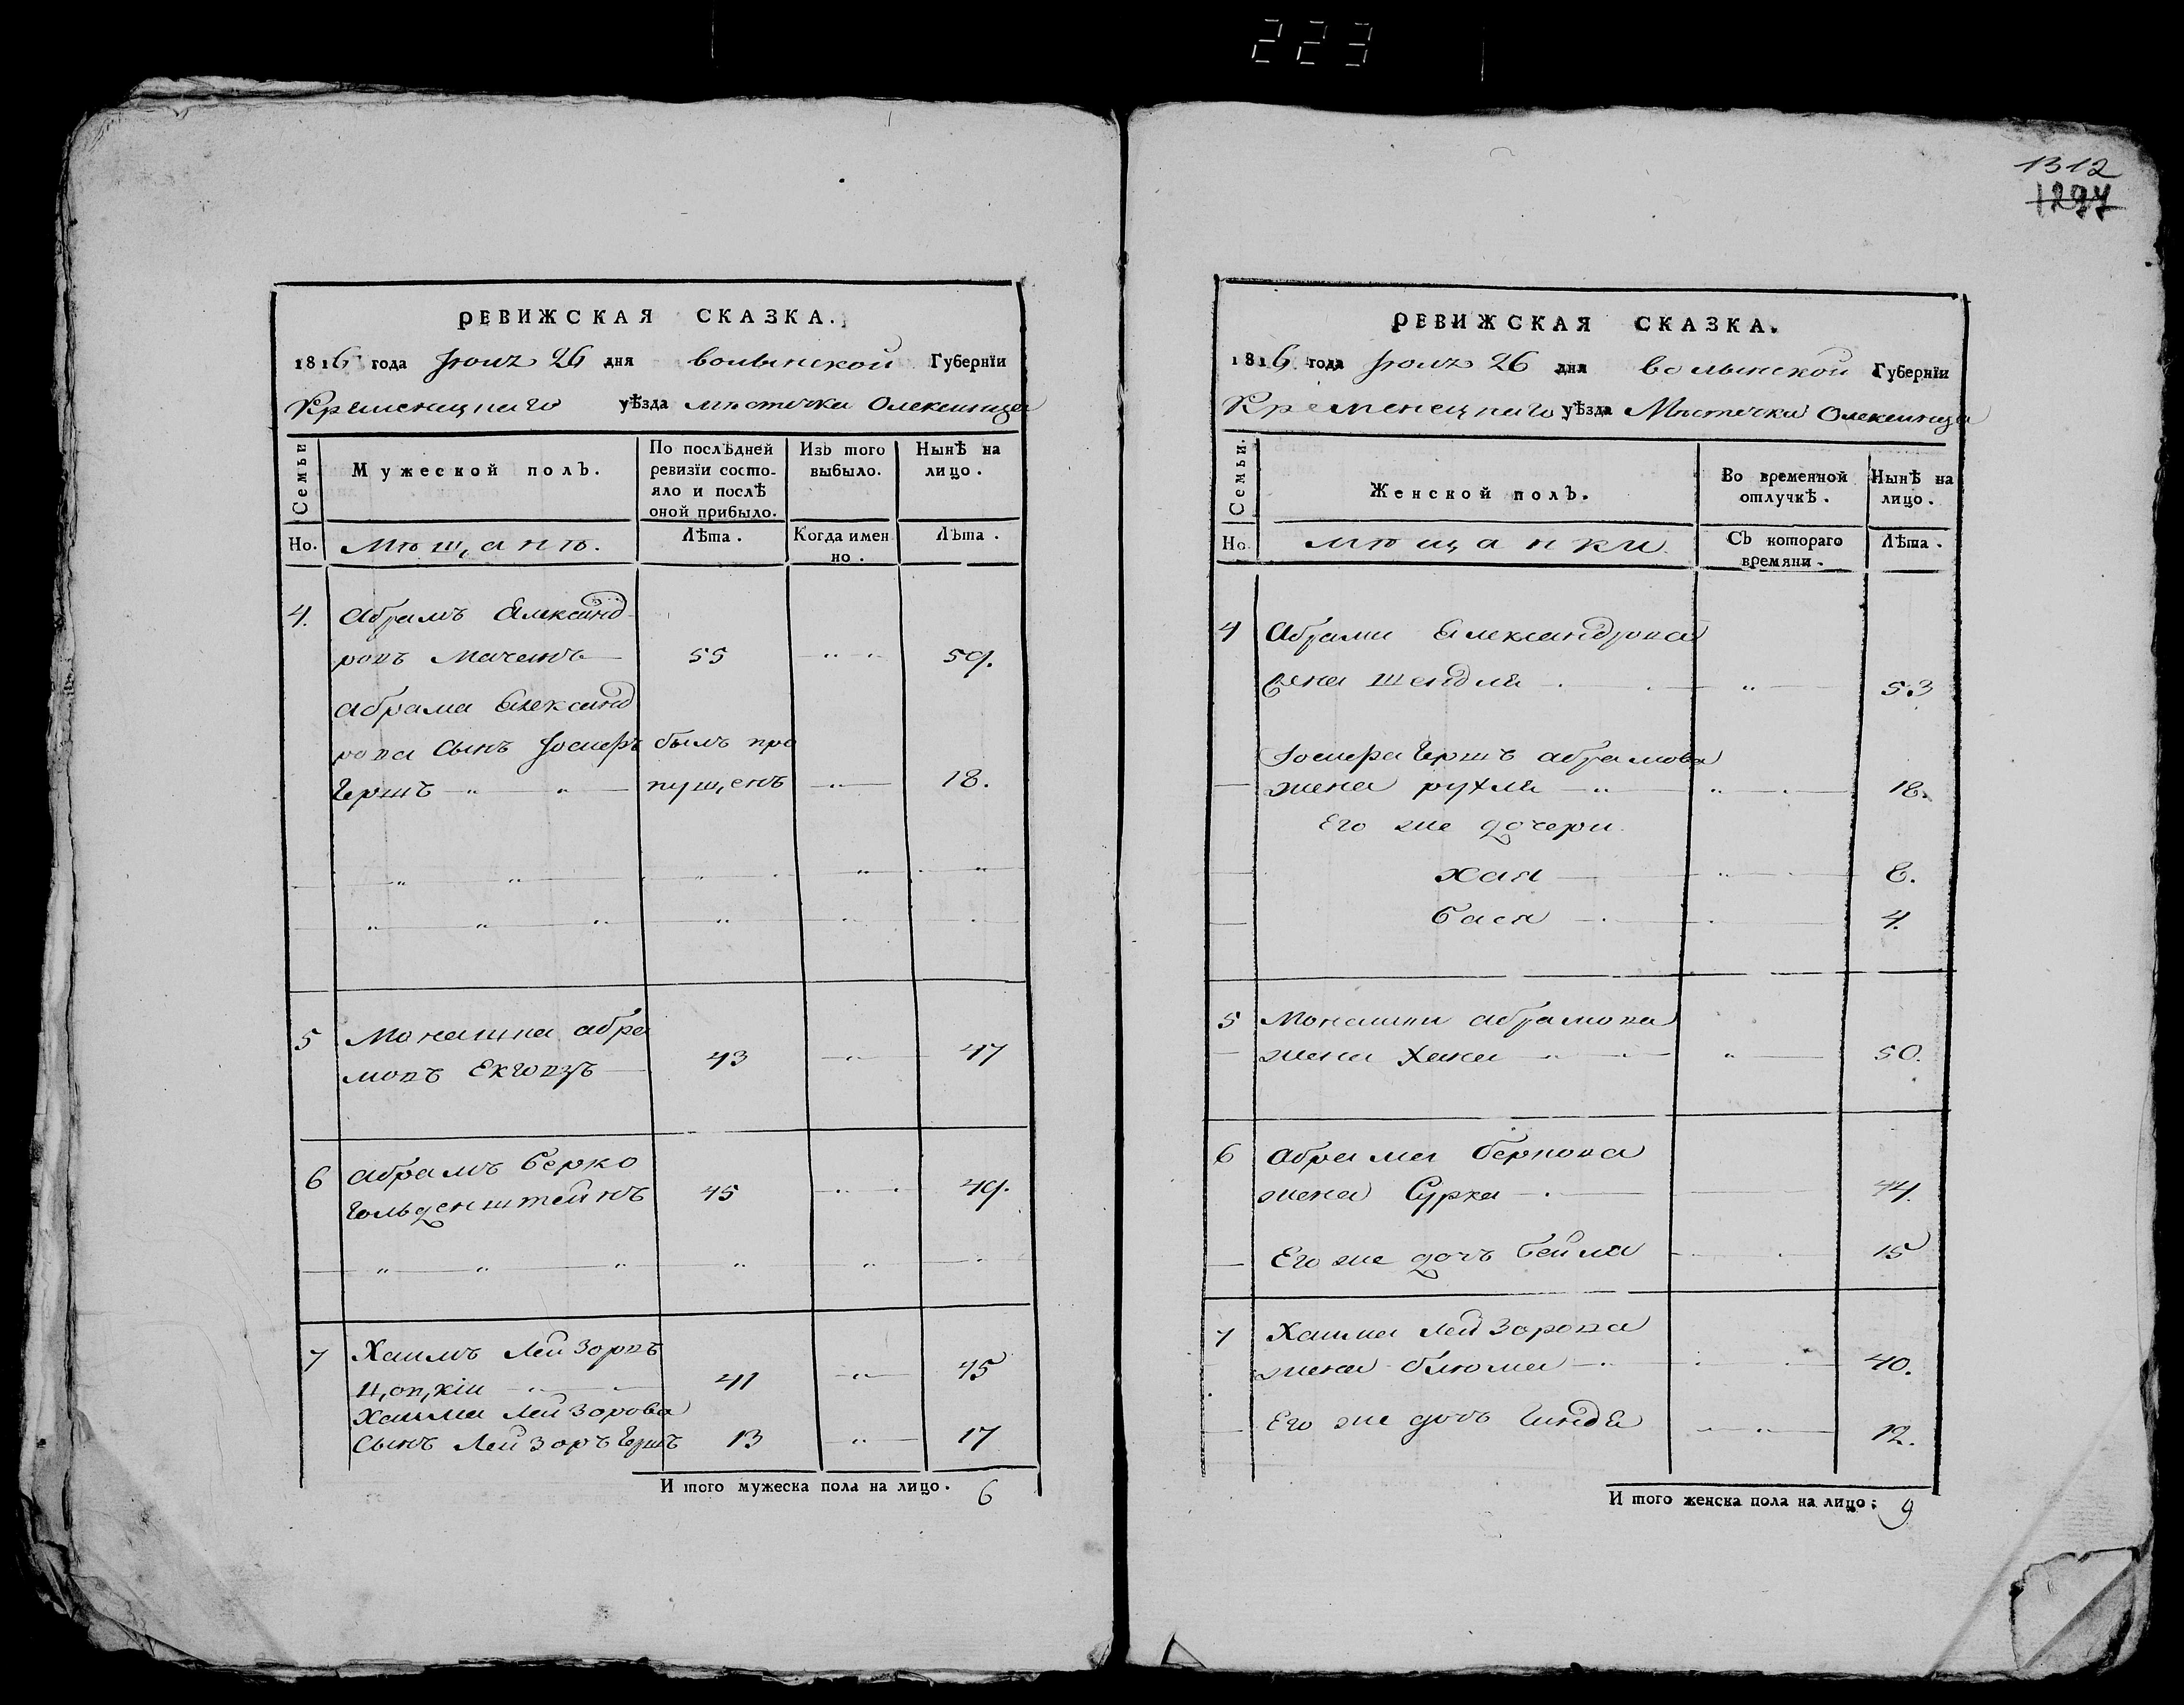 223
1312
1297
РЕВИЖСКАЯ СКАЗКА.
1816 года Іюля 26 дня волынской Губернїи
Кременецкаго уѣзда мѣстечка Олексинца
Семьи
Мужеской полъ.
По послѣдней ревизїи состояло и послѣ оной прибыло.
Изъ того выбыло.
Нынѣ на лицо.
Но. Мѣщанъ. Лѣта. Когда именно. Лѣта.
4. Абрамъ Александ
ровъ Маченъ 55 59.
Абрама Александ
рова Сынъ Іосифъ былъ про
Гершъ пущенъ 18.
5 Монашка абра
мовъ 43 47
6 абрамъ Берко
Гольденштейнъ 45 49.
7 Хаимъ Лейзоровъ
41 45
Хаима Лейзорова
Сынъ Лейзоръ Гершъ 13 17
И того мужеска пола на лицо. 6
РЕВИЖСКАЯ СКАЗКА.
1816 года Іюля 26 дня волынской Губернїи
Кременецкаго уѣзда Мѣстечка Олексинца
Семьи.
Женской полъ.
Во временной отлучкѣ.
Нынѣ на лицо.
Но. мѣщанки. Съ котораго времяни. Лѣта.
4 Абрама Александрова
жена Шендля 53
Іосифа Гершъ абрамова
жена рухля 18.
Его же дочери.
хая 8.
бася 4.
5 Монашки абрамова
жена Хана 50.
6 Абрама беркова
жена Сурка 44.
Его же дочъ бейла 15
7 Хаима Лейзорова
жена блюма 40.
Его же дочъ Гинда 12.
И того женска пола на лицо: 9